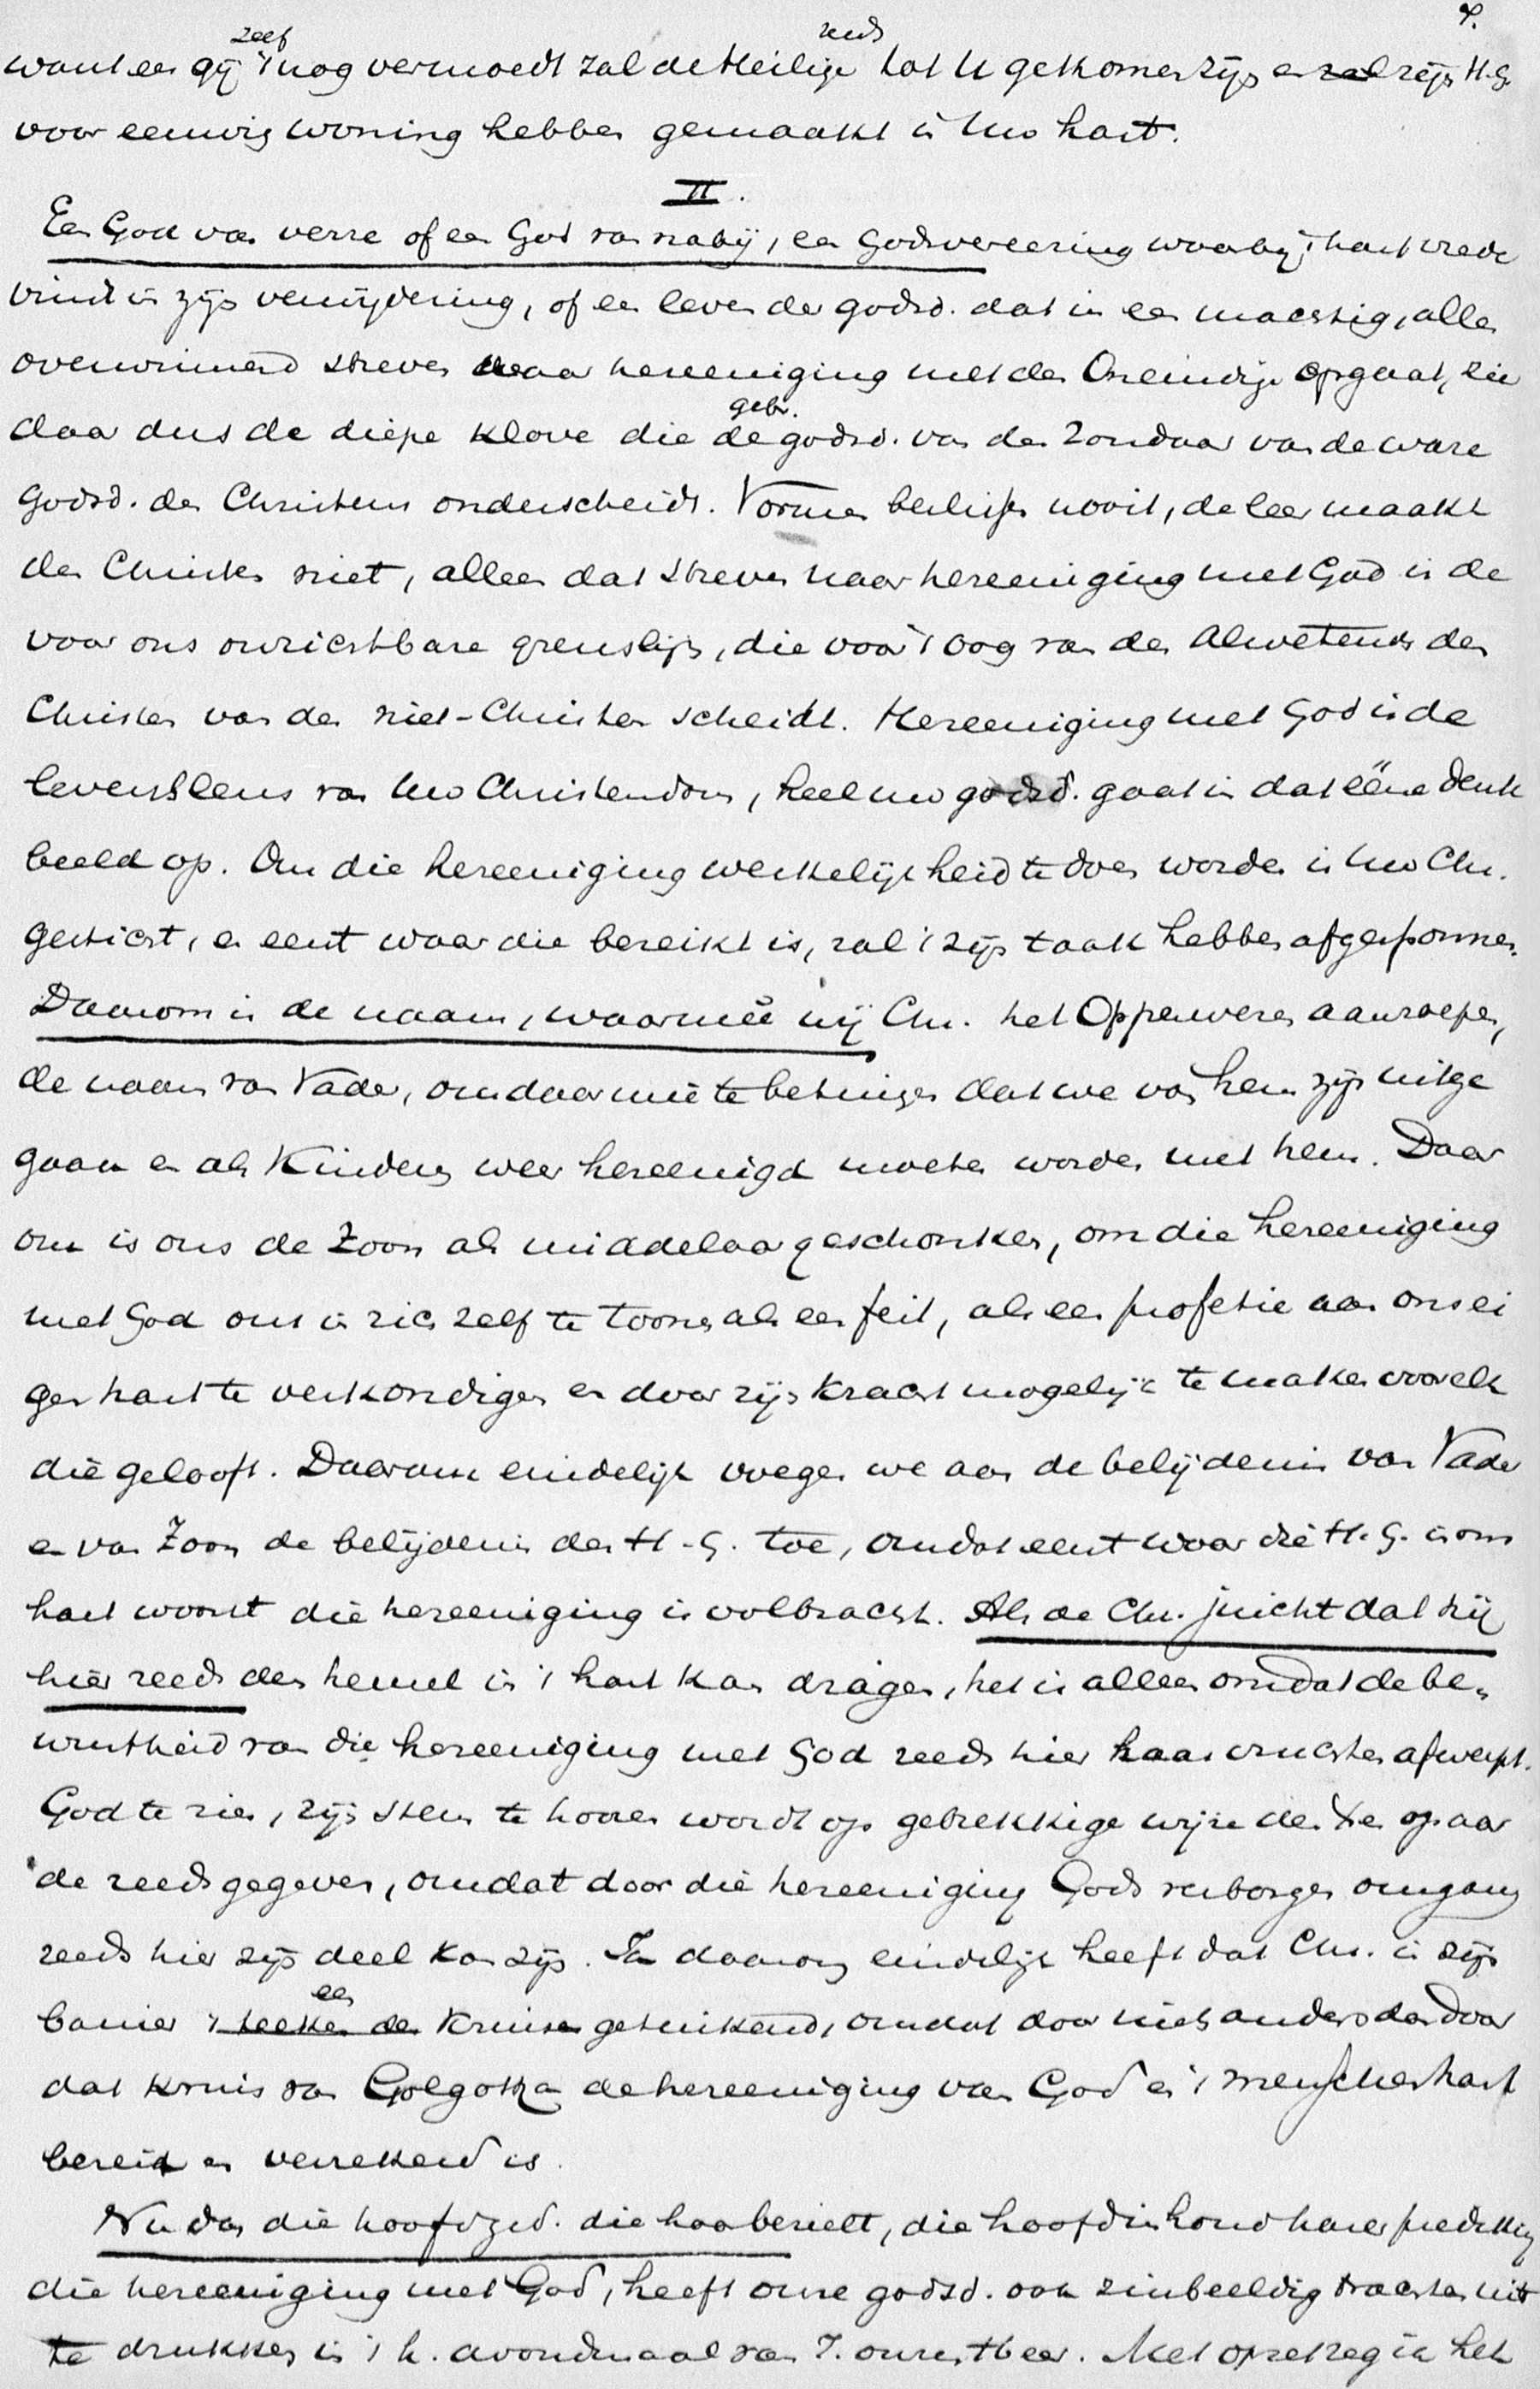 7.
want eer gij zelf 't nog vermoedt zal de Heilige reeds tot U gekomen zijn en zal zijn H.G.
voor eeuwig woning hebben gemaakt in Uw hart.
II.
Een God van verre of een God van nabij, een Godsvereering waarbij 't hart vrede
vindt in zijn verwijdering, of een levende godsd. dat in een machtig, alles
overwinnend streven naar hereeniging met den Oneindige opgaat, zie
daar dus de diepe klove die de gebr. godsd. van den Zondaar van de ware
Godsd. des Christens onderscheidt. Vormen beslissen nooit, de leer maakt
den Christen niet, alleen dat streven naar hereeniging met God is de
voor ons onzichtbare grenslijn, die voor 't oog van den Alwetende den
Christen van den niet-Christen scheidt. Hereeniging met God is de
levensleus van Uw Christendom, heel uw godsd. gaat in dat ééne denk
beeld op. Om die hereeniging werkelijkheid te doen worden is Uw Chr.
gesticht, en eerst waar die bereikt is, zal 't zijn taak hebben afgesponnen.
Daarom is de naam, waarmeê wij Chr. het Opperwezen aanroepen,
de naam van Vader, om daarmeê te betuigen dat we van hem zijn uitge
gaan en als Kinderen weer hereenigd moeten worden met hem. Daar
om is ons de Zoon als middelaar geschonken, om die hereeniging
met God ons in zich zelf te toonen als een feit, als een profetie aan ons ei
gen hart te verkondigen en door zijn kracht mogelijk te maken voor elk
die gelooft. Daarom eindelijk voegen we aan de belijdenis van Vader
en van Zoon de belijdenis des H.G. toe, omdat eerst waar die H.G. in ons
hart woont die hereeniging is volbracht. Als de Chr. juicht dat hij
hier reeds den hemel in 't hart kan dragen, het is alleen omdat de be-
wustheid van die hereeniging met God reeds hier haar vruchten afwerpt.
God te zien, zijn stem te hooren wordt op gebrekkige wijze den Xen op aar
de reeds gegeven, omdat door die hereeniging Gods verborgen omgang
reeds hier zijn deel kan zijn. Ja daarom eindelijk heeft dat Chr. in zijn
banier 't teeken des een Kruisen getuikend, omdat door niets anders dan door
dat kruis van Golgotha de hereeniging van God en 't menschenhart
bereid en verzekerd is.
Nu dan die hoofdged. die haar bezielt, die hoofdinhoud harer prediking
die hereeniging met God, heeft onze godsd. ook zinbeeldig trachten uit
te drukken in 't h. avondmaal van J. onzen Heer. Met opzet zeg ik het